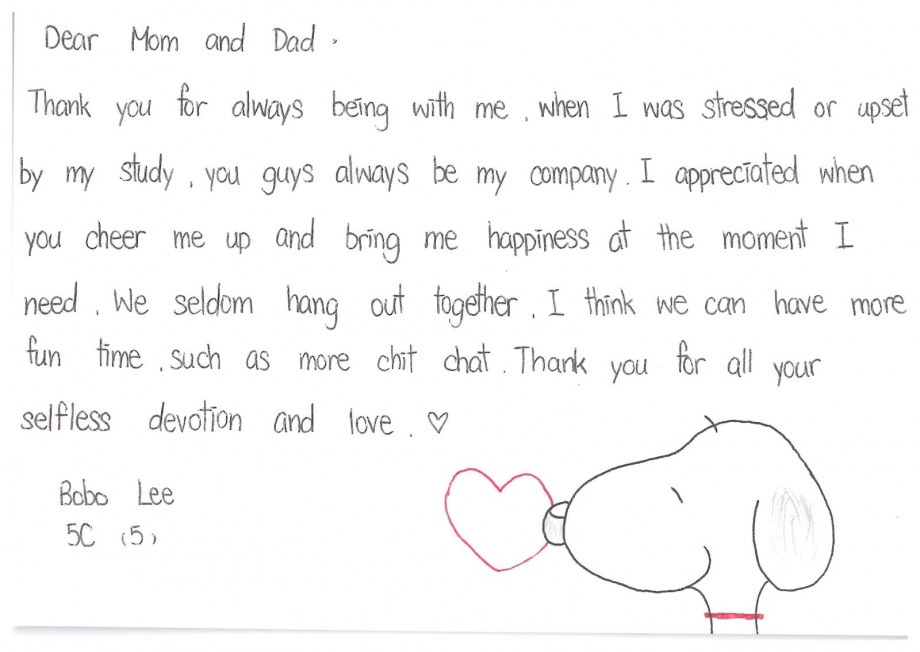 Dear Mom and Dad.
Thank you for always being with me, when I was stressed or upset
by my study, you guys always be my company. I appreciated when
you cheer me up and bring me happiness at the moment I
need. We seldom hang out together. I think we can have more
fun time, such as more chit chat. Thank you for all your
selfless devotion and love. ♡
Bobo Lee
5C (5)